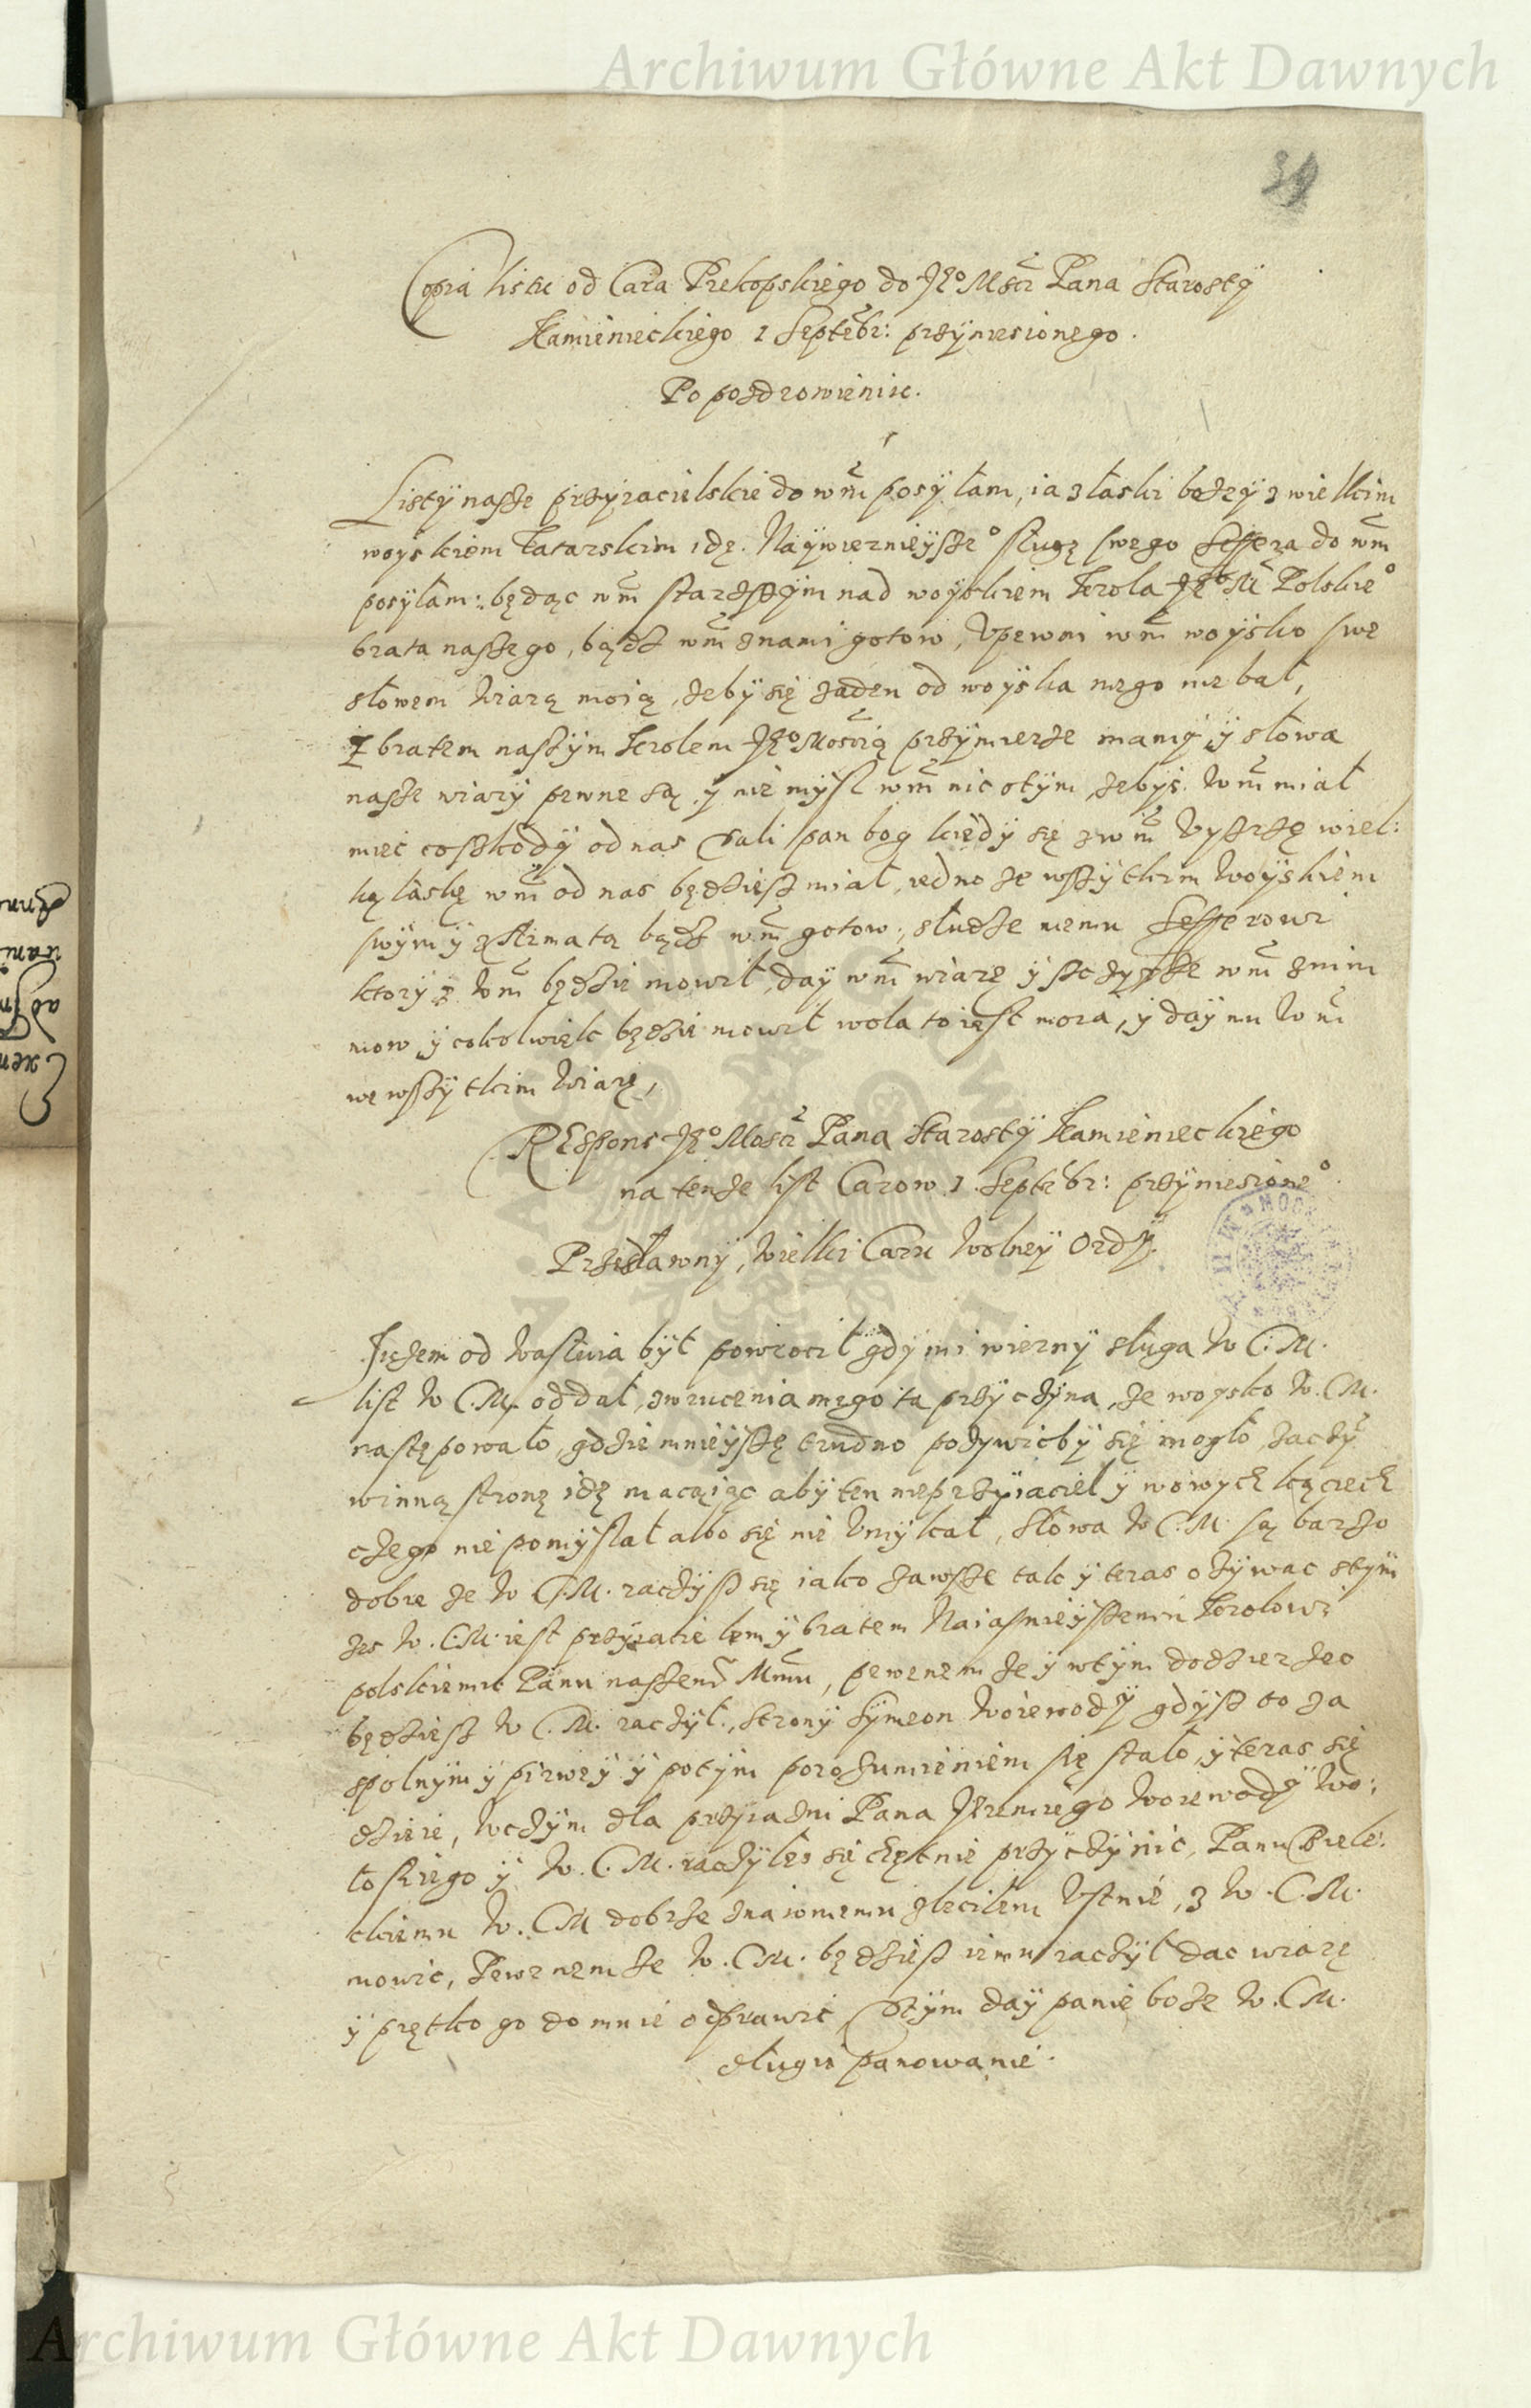 Archiwum Główne Akt Dawnych
39
Copia listu od Cara Prekopskiego do Jeº Mści Pana Starosty
Kamienieckiego 1 Septēbr: przyniesionego.
Po pozdrowieniu.
Listÿ nasze przÿiacielskie do wm̃ posÿłam, ia z łaski bozeÿ z wielkim
woÿskiem Tatarskim idę. Naÿwiernieÿszeº sługę swego Seffera do wm̃
posyłam: będąc wm̃ starszÿm nad woÿskiem Krola Jeº M Polskieº
brata naszego, bądz wm̃ z nami gotow, Vpewni wm̃ woÿsko swe
słowem wiarą moią, zebÿ się zaden od woÿska mego nie bał,
Z bratem naszÿm Krolem Jeº Mością przÿmierze mamÿ ÿ słowa
nasze wiarÿ pewne są, ÿ nie mÿsl wm̃ nic otÿm, zebÿs wm̃ miał
miec co szkodÿ od nas, da li pan bog kiedÿ się z wm̃ Vyzrzę wiel:
ką łaskę wm̃ od nas będziesz miał, iedno ze wszÿtkim woÿskiem
swÿm ÿ z Armatą bądz wm̃ gotow, słudze memu Sefferowi
ktorÿ z wm̃ będzie mowił, daÿ wm̃ wiarę ÿ szczyrze wm̃ z nim
mow ÿ cokolwiek będzie mowił wola to iest moia, ÿ daÿ mu wm̃
we wszÿtkim wiarę,
REspons Jeº Mości Pana Starostÿ Kamienieckiego
na tenze list Carow 1 Septēbr: przÿniesioneº
Przesławnÿ, wielki Caru wolneÿ Ordÿ.
Juzem od wasluia bÿł powrocił gdÿ mi wiernÿ sługa W C. M.
list W C. M. oddał, zwrucenia mego ta przÿczÿna, ze woysko W. C M.
nastąpowało, gdzie mnieÿszę trudno pozywicbÿ się mogło,
winną stronę idę macaiąc abÿ ten nieprzÿiaciel ÿ wowych kąciech
czego nie pomÿslał albo się nie vmÿkał, Słowa W C. M. są barzo
dobre ze W C. M. raczÿsz się iako zawsze tak ÿ teras ozÿwac stÿm
zes W. C. M. iest przÿiacielem ÿ bratem Naiasnieÿszemu Krolowi
polskiemu Panu naszemu Mm̃u, pewenem ze ÿ wtÿm dodzierzec
będziesz W C. M. raczÿł, Stronÿ Sÿmeon Woiewodÿ gdÿsz to za
spolnÿm ÿ pirweÿ ÿ potÿm porozumieniem się stało, ÿ teras się
dzieie, wczÿm dla przÿiazni Pana Jeremiego Woiewodÿ Wo:
łoskiego ÿ W. C. M. raczÿłes się chętnie przÿczÿnic, Panu Biele:
ckiemu W. C M dobrze znaiomemu zleciłem Vstnie, z W. C. M.
mowic, Pewenem ze W. C M. będziesz iemu raczÿł dac wiarę
ÿ prętko go do mnie odprawic, Stÿm daÿ panie boze W. C M.
długie panowanie.
Archiwum Główne Akt Dawnych